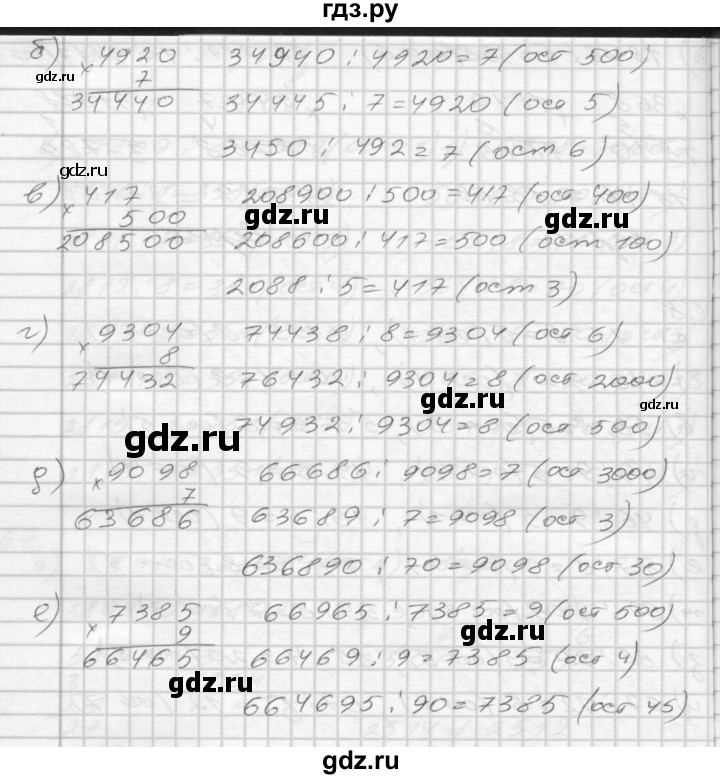 гдз.ру
б) 4920 34940 : 4920 = 7 (ост 500)
× 7
34440 34445 : 7 = 4920 (ост 5)
gdz.ru
3450 : 492 = 7 (ост 6)
gdz.ru
в) 417 208900 : 500 = 417 (ост 400)
× 500
gdz.ru gdz.ru
208500 208600 : 417 = 500 (ост 100)
2088 : 5 = 417 (ост 3)
г) 9304 74438 : 8 = 9304 (ост 6)
× 8
74432 76432 : 9304 = 8 (ост 2000)
gdz.ru gdz.ru
74932 : 9304 = 8 (ост 500)
gdz.ru
д) 9098 66686 : 9098 = 7 (ост 3000)
× 7
63686 63689 : 7 = 9098 (ост 3)
636890 : 70 = 9098 (ост 30)
е) 7385 66965 : 7385 = 9 (ост 500)
× 9
gdz.ru
66465 66469 : 9 = 7385 (ост 4)
gdz.ru
664695 : 90 = 7385 (ост 45)
gdz.ru
gdz.ru